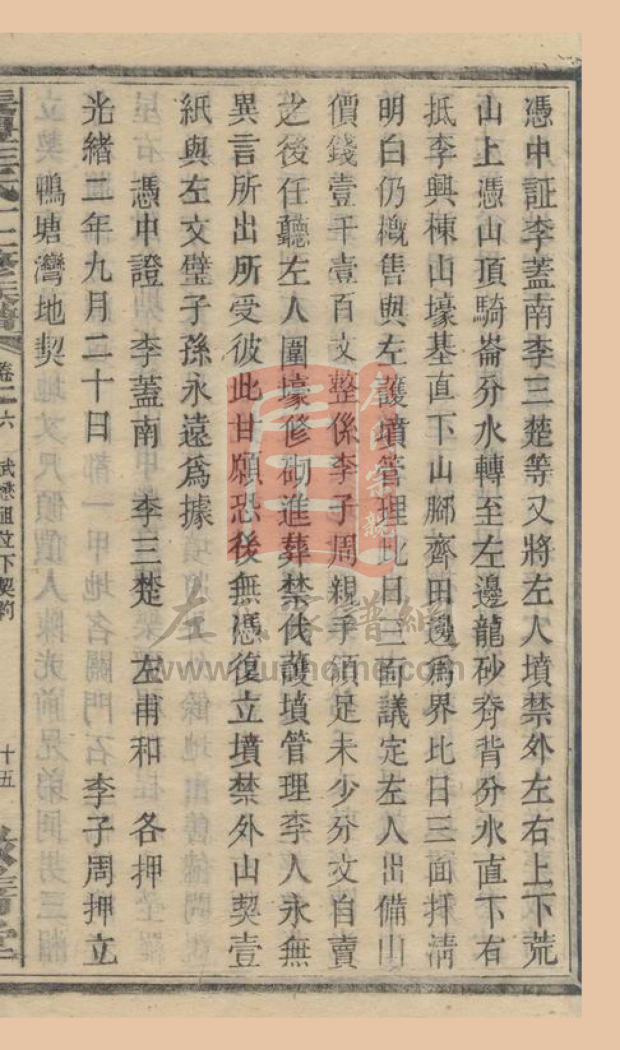 憑中証李蓋南李三楚等又將左人墳禁外左右上下荒
山上憑山頂騎崙分水轉至左邊龍砂脊背分水直下右
抵李興棟山壕基直下山腳齊田邊爲界比日三面扦清
明白仍概售與左護墳管理比日三面議定左人出備山
價錢壹千壹百文整係李子周親手領足未少分文自賣
之後任聽左人圍壕修砌進葬禁伐護墳管理李人永無
異言所出所受彼此甘願恐後無憑復立墳禁外山契壹
紙與左文璧子孫永遠爲據
憑中證 李蓋南 李三楚 左甫和 各押
光緒二年九月二十日 李子周押立
鴨塘灣地契
卷二 六
十五
www.zuohome.com